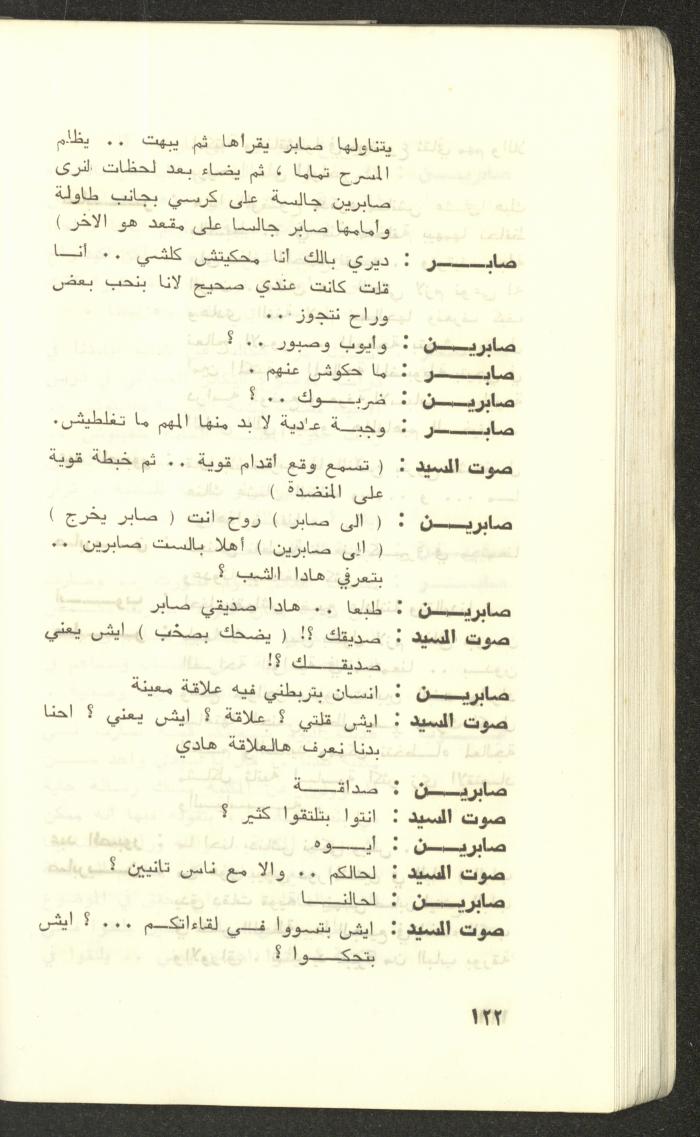 يتناولها صابر يقرأها ثم يبهت .. يظلم
المسرح تماما ، ثم يضاء بعد لحظات لنرى
صابرين جالسة على كرسي بجانب طاولة
وأمامها صابر جالسا على مقعد هو الاخر )
صابـــــر : ديري بالك أنا محكيتش كلشي .. أنـــا
قلت كانت عندي صحيح لانا بنحب بعض
وراح نتجوز ..
صابريـــن : وايوب وصبور .. ؟
صابـــــر : ما حكوش عنهم .
صابريـــن : ضربـــوك .. ؟
صابـــــر : وجبـــة عادية لا بد منها المهم ما تغلطيش.
صوت السيد : ( تسمع وقع أقدام قوية .. ثم خبطة قوية
على المنضدة )
صابريـــن : ( الى صابر ) روح انت ( صابر يخرج )
( الى صابرين ) أهلا بالست صابرين ..
بتعرفي هادا الشب ؟
صابريـــن : طبعا .. هادا صديقي صابر
صوت السيد : صديقك ؟! ( يضحك بصخب ) ايش يعني
صديقـــك ؟!
صابريـــن : انسان بتربطني فيه علاقة معينة
صوت السيد : ايش قلتي ؟ علاقة ؟ ايش يعني ؟ احنا
بدنا نعرف هالعلاقة هادي
صابريـــن : صداقـــة
صوت السيد : انتوا بتلتقوا كثير ؟
صابريـــن : أيـــوه
صوت السيد : لحالكم .. والا مع ناس تانيين ؟
صابريـــن : لحالنـــا
صوت السيد : ايش بتسووا فـــي لقاءاتكـــم ... ؟ ايش
بتحكـــوا ؟
١٢٢